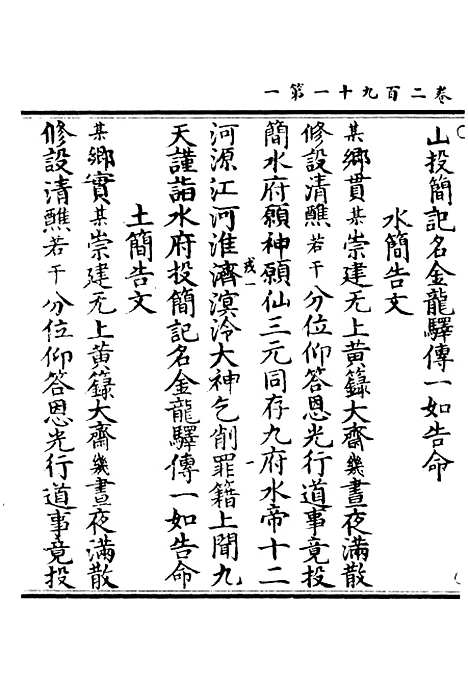 卷二百九十一第一
山投簡記名金龍驛傳一如告命
水簡告文
某鄉貫某崇建无上黃籙大齋幾晝夜滿散
修設清醮若干分位仰答恩光行道事竟投
簡水府願神願仙三元同存九府水帝十二
河源江河淮濟溟泠大神乞削罪籍上聞九
天謹詣水府投簡記名金龍驛傳一如告命
土簡告文
某鄉實某崇建无上黃籙大齋幾晝夜滿散
修設清醮若干分位仰答恩光行道事竟投